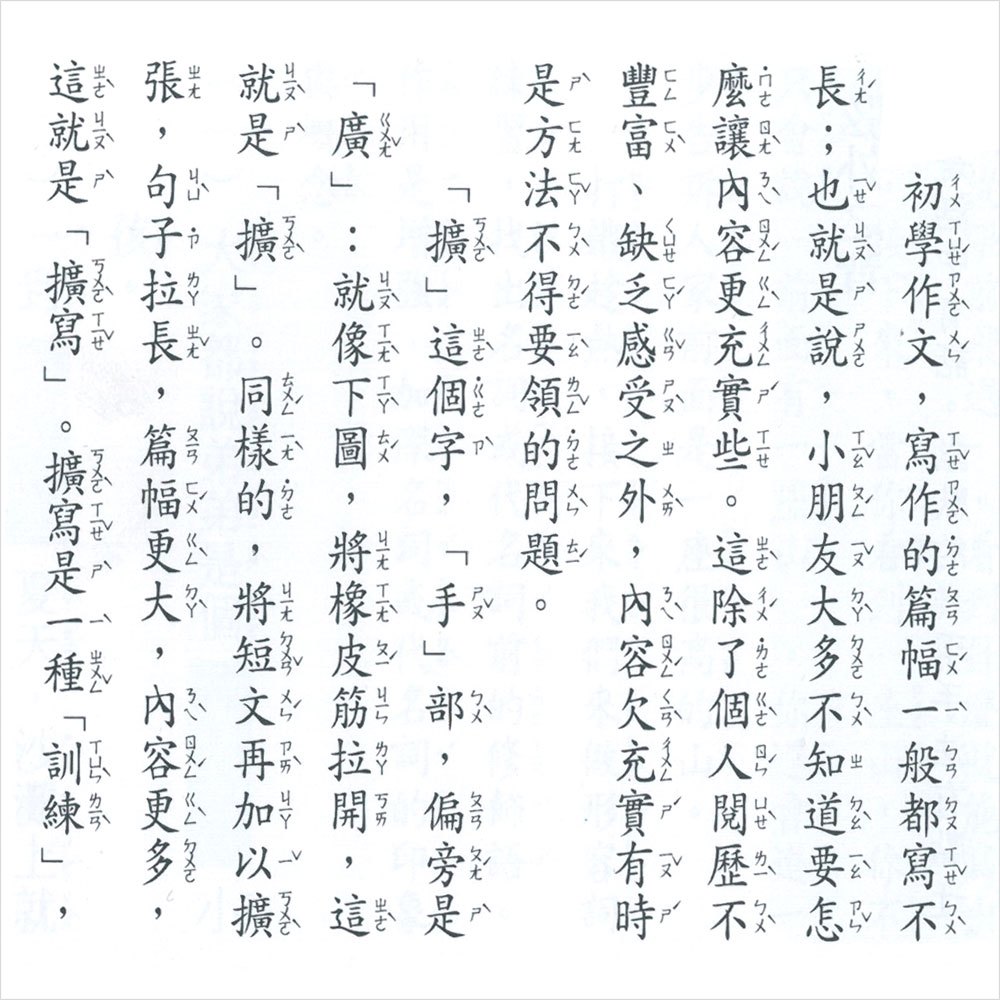 初學作文，寫作的篇幅一般都寫不
長；也就是說，小朋友大多不知道要怎
麼讓內容更充實些。這除了個人閱歷不
豐富、缺乏感受之外，內容欠充實有時
是方法不得要領的問題。
「擴」這個字，「手」部，偏旁是
「廣」：就像下圖，將橡皮筋拉開，這
就是「擴」。同樣的，將短文再加以擴
張，句子拉長，篇幅更大，內容更多，
這就是「擴寫」。擴寫是一種「訓練」，